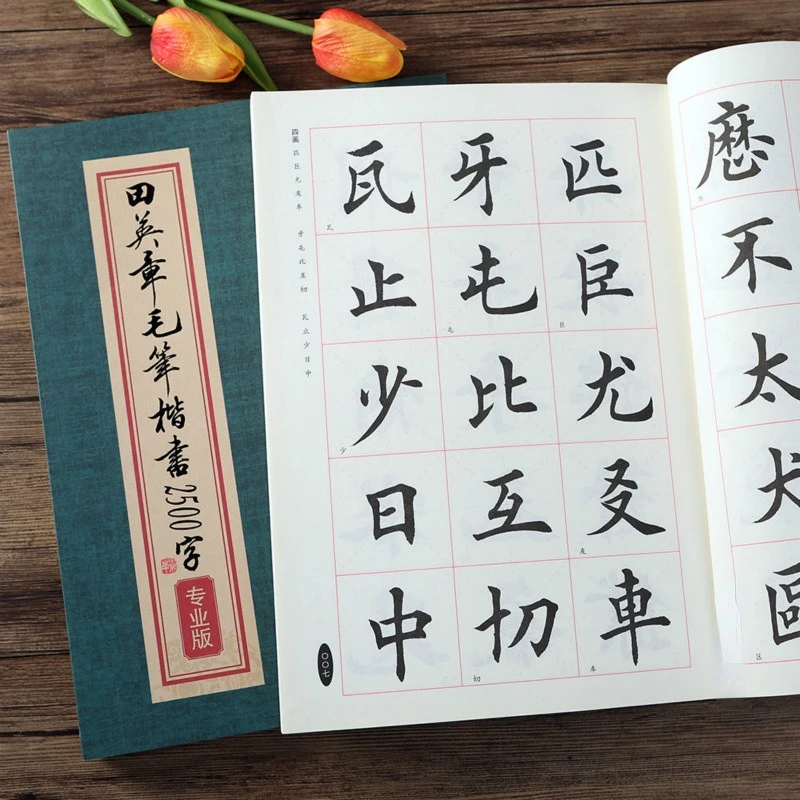 田英章毛筆楷書2500字
专业版
四画 匹巨尤友车 牙屯比互切 瓦止少日中
匹巨尤友車
牙屯比互切
瓦止少日中
〇〇七
不太犬區
区